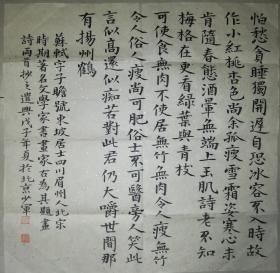 怕愁貪睡獨開遲自恐冰容不入時故
作小紅桃杏色尚余孤瘦雪霜姿寒心未
肯隨春態酒暈無端上玉肌詩老不知
梅格在更看綠葉與青枝
可使食無肉不使居無竹無肉令人瘦無竹
令人俗人瘦尚可肥俗士不可醫旁人笑此
言似高還似痴若對此君仍大嚼世間那
有揚州鶴
蘇軾字子瞻號東坡居士四川眉州人北宋
時期著名文學家書畫家右為其題畫
詩兩首抄之遣興戊子年夏於北京少軍